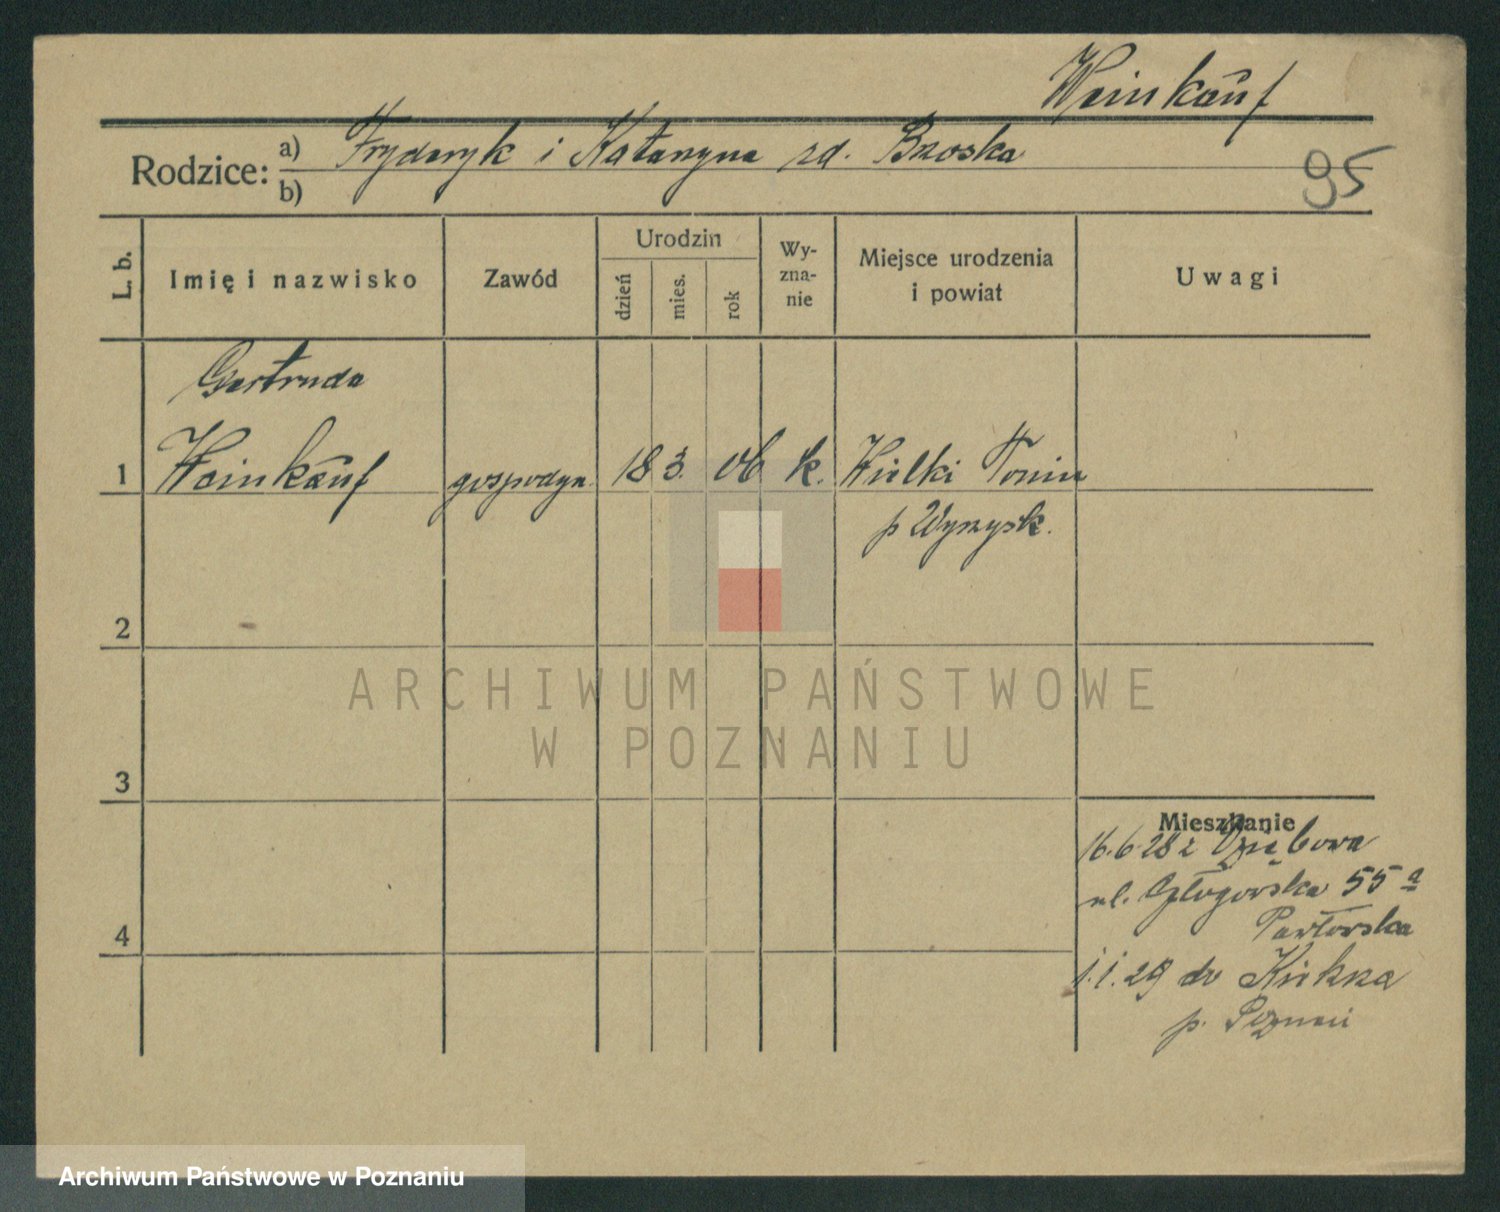 Weinkauf
Rodzice: a) Fryderyk i Katarzyna zd. Brzoska
b)
95
L. b.
Imię i nazwisko
Zawód
Urodzin
dzień
mies.
rok
Wy-
zna-
nie
Miejsce urodzenia
i powiat
Uwagi
Gertruda
1 Weinkauf gospodyn. 18 3. 06 k. Wielki Tonin
p Wyrzysk.
2
ARCHIWUM PAŃSTWOWE
W POZNANIU
3
Mieszkanie
16.6.28 z
ul. Głogowska 55 a
Pawłowska
4
1.1.29 do Kiekrza
p. Poznań
Archiwum Państwowe w Poznaniu